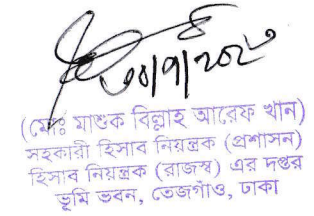 ৩০/৭/২০২৩
(মোঃ মাশুক বিল্লাহ আরেফ খান)
সহকারী হিসাব নিয়ন্ত্রক (প্রশাসন)
হিসাব নিয়ন্ত্রক (রাজস্ব) এর দপ্তর
ভূমি ভবন, তেজগাঁও, ঢাকা